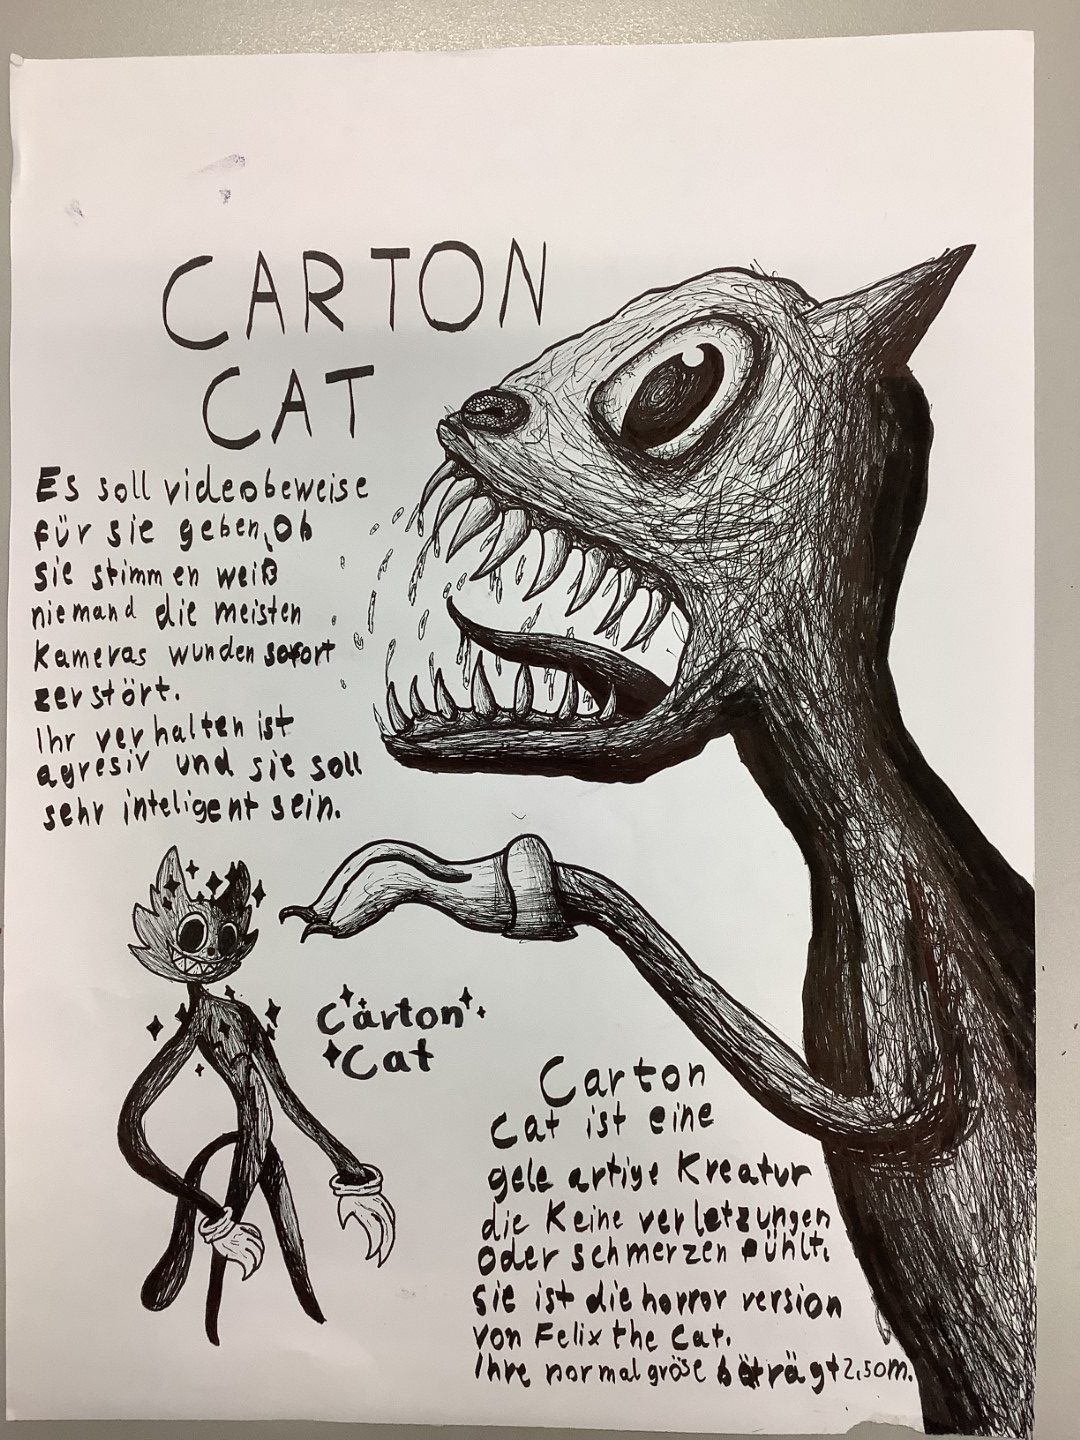 CARTON
CAT
Es soll videobeweise
für sie geben, Ob
sie stimmen weiß
niemand die meisten
Kameras wunden sofort
zerstört.
Ihr verhalten ist
agresiv und sie soll
sehr inteligent sein.
Carton
Cat
Carton
Cat ist eine
gele artige Kreatur
die Keine verletzungen
Oder schmerzen fühlt.
Sie ist die horror version
von Felix the Cat.
Ihre normal gröse beträgt 2,50m.